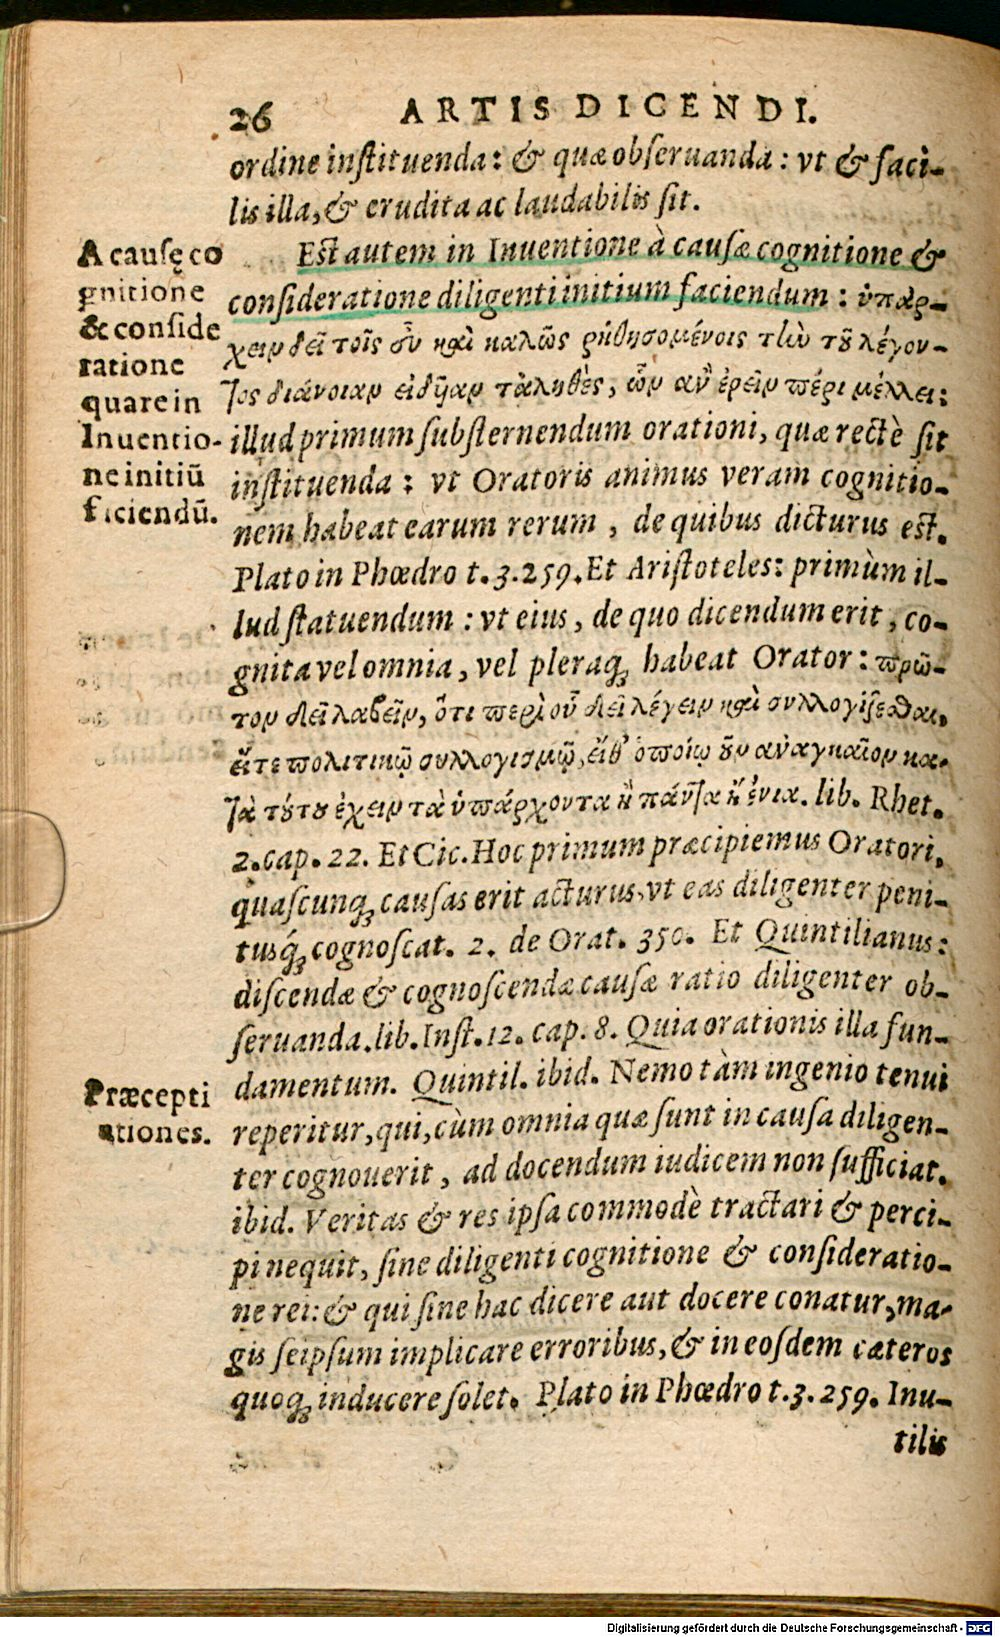 26 ARTIS DICENDI.
ordine inſtituenda: & quæ obſeruanda: vt & faci-
lis illa, & erudita ac laudabilis ſit.
Est autem in Inuentione à cauſæ cognitione &
conſideratione diligenti initium faciendum: ὑπάρ-
χειν δεῖ τοῖς εὖ καὶ καλῶς ῥηθησομένοις τὴν τοῦ λέγον-
τος διάνοιαν εἰδῆαν τἀληθὲς, ὧν ἂν ἐρεῖν πέρι μέλλει:
illud primum ſubſternendum orationi, quæ rectè ſit
inſtituenda: vt Oratoris animus veram cognitio-
nem habeat earum rerum, de quibus dicturus eſt.
Plato in Phœdro t. 3. 259. Et Ariſtoteles: primùm il-
lud ſtatuendum: vt eius, de quo dicendum erit, co-
gnita vel omnia, vel pleraq; habeat Orator: πρῶ-
τον δεῖ λαβεῖν, ὅτι περὶ οὗ δεῖ λέγειν καὶ συλλογίζεσθαι,
εἴτε πολιτικῷ συλλογισμῷ, εἴθ' ὁποίῳ οὖν ἀναγκαῖον κα-
τὰ τούτου ἔχειν τὰ ὑπάρχοντα ἢ πάντα ἢ ἔνια. lib. Rhet.
2. cap. 22. Et Cic. Hoc primum præcipiemus Oratori,
quaſcunq; cauſas erit acturus, vt eas diligenter peni-
tusq́; cognoſcat. 2. de Orat. 350. Et Quintilianus:
diſcendæ & cognoſcendæ cauſæ ratio diligenter ob-
ſeruanda. lib. Inſt. 12. cap. 8. Quia orationis illa fun-
damentum. Quintil. ibid. Nemo tàm ingenio tenui
reperitur, qui, cùm omnia quæ ſunt in cauſa diligen-
ter cognouerit, ad docendum iudicem non ſufficiat.
ibid. Veritas & res ipſa commodè tractari & perci-
pi nequit, ſine diligenti cognitione & conſideratio-
ne rei: & qui ſine hac dicere aut docere conatur, ma-
gis ſeipſum implicare erroribus, & in eoſdem cæteros
quoq; inducere ſolet. Plato in Phœdro t. 3. 259. Inu-
tilis
A cauſę co
gnitione
& conſide
ratione
quare in
Inuentio-
ne initiũ
faciendũ.
Præcepti
rationes.
Digitalisierung gefördert durch die Deutsche Forschungsgemeinschaft - DFG